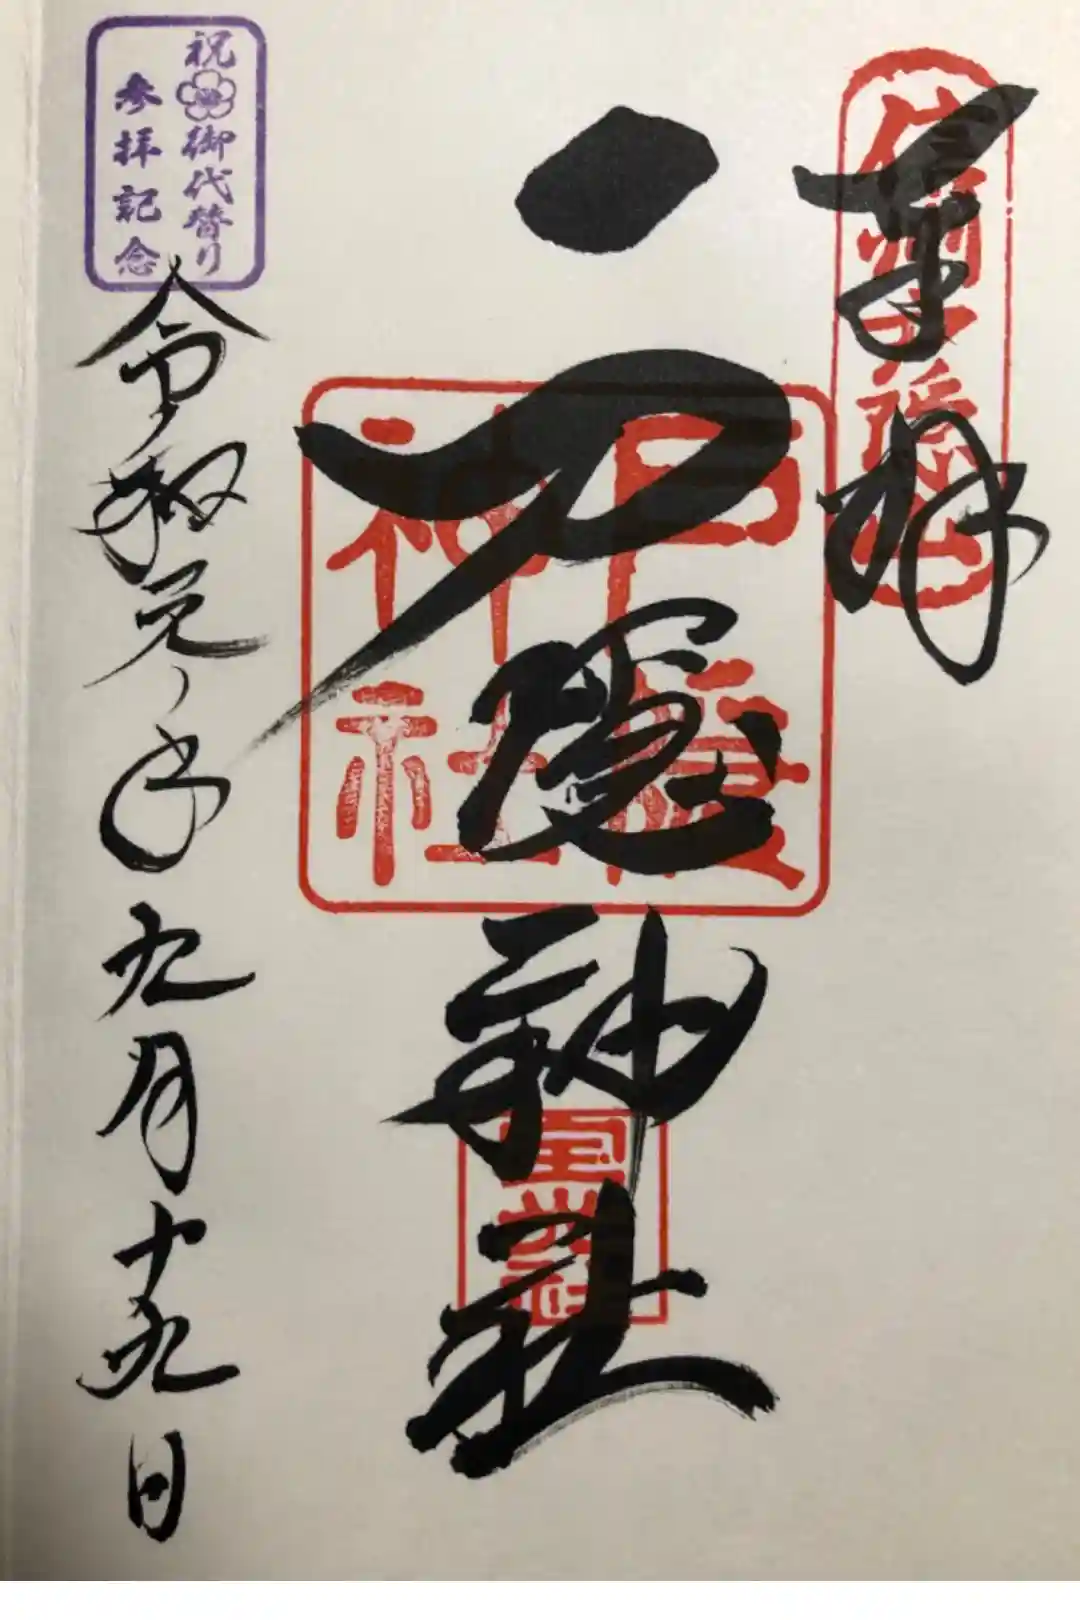 奉拝
信州戸隠山
戸隠神社
戸隠神社
祝御代替り
参拝記念
令和元年九月十九日